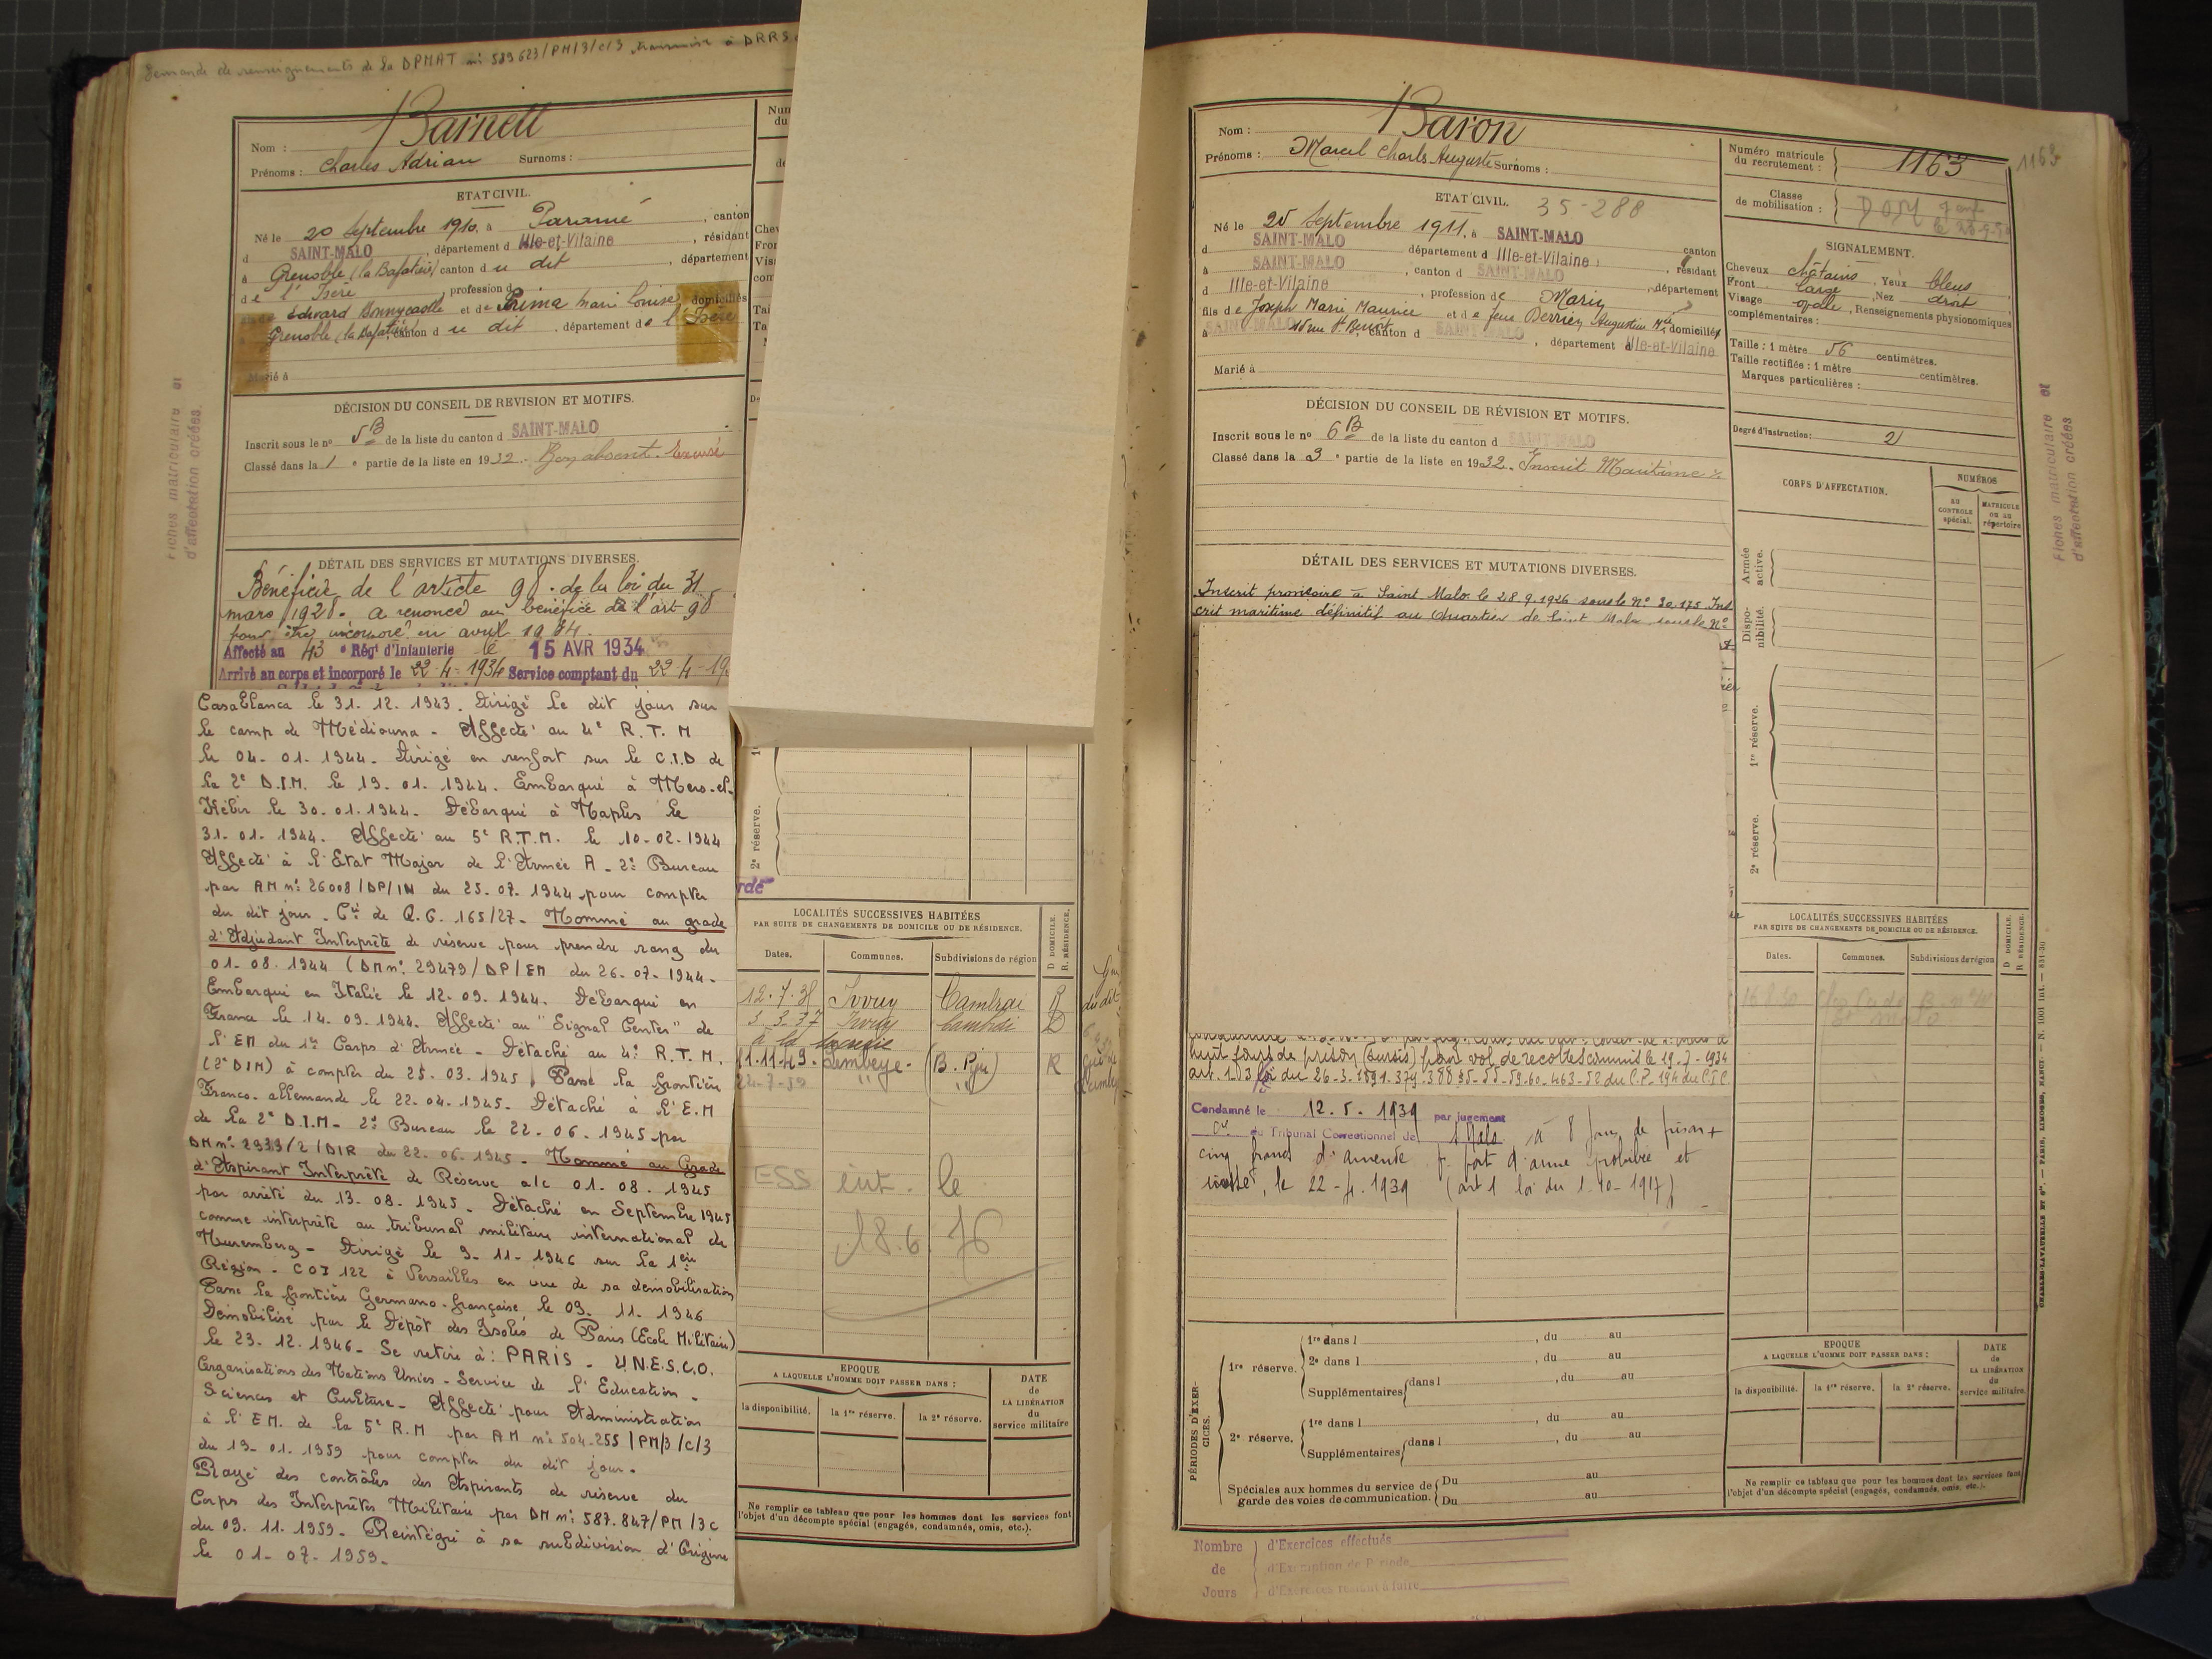 Demande de renseignements de la DPMAT n° 589623/PM/3/c/3 transmise à DRRS
Nom : Barnett
Prénoms : Charles Adrian Surnoms :
ETAT CIVIL.
Né le 20 Septembre 1910, à Paramé, canton
d SAINT-MALO, département d Ille-et-Vilaine, résidant
à Grenoble (la Bajatière) canton d u dit, département
de l'Isère, profession d
Edward Bonnycastle et de Prima Marie Louise, domiciliés
à Grenoble (la Bajatière), canton d u dit, département de l'Isère
Marié à
DÉCISION DU CONSEIL DE REVISION ET MOTIFS.
Inscrit sous le n° 5 B de la liste du canton d SAINT-MALO
Classé dans la 1e partie de la liste en 1932. Bon absent. Excusé
DÉTAIL DES SERVICES ET MUTATIONS DIVERSES.
Bénéficie de l'article 98 de la loi du 31
mars 1928. a renoncé au bénéfice de l'art 98
pour être incorporé en avril 1934.
Affecté au 43e Régt d'Infanterie le 15 AVR 1934
Arrivé au corps et incorporé le 22-4-1934 Service comptant du 22-4-19
Casablanca le 31.12.1943. Dirigé le dit jour sur
le camp de Médiouna - Affecté au 4e R.T.M
le 04-01-1944. Dirigé en renfort sur le C.I.D de
la 2e D.I.M. le 19.01.1944. Embarqué à Mers-el-
Kébir le 30.01.1944. Débarqué à Naples le
31.01.1944. Affecté au 5e R.T.M. le 10-02-1944
Affecté à l'Etat Major de l'Armée A - 2e Bureau
par AM n° 26008/DP/IN du 25.07.1944 pour compter
du dit jour. Cie de Q.G. 165/27 - Nommé au grade
d'Adjudant Interprète de réserve pour prendre rang du
01-08.1944 (DM n° 29479/DP/EM du 26-07-1944.
Embarqué en Italie le 12.09.1944. Débarqué en
France le 14.09.1944. Affecté au "Signal Center" de
l'EM du 1er Corps d'Armée - Détaché au 4e R.T.M.
(2e DIM) à compter du 25.03.1945. Passe la frontière
Franco-allemande le 22.04.1945. Détaché à l'E.M
de la 2e D.I.M - 2e Bureau le 22-06.1945 par
DM n° 2939/2/DIR du 22.06.1945 - Nommé au Grade
d'Aspirant Interprète de Réserve a/c 01.08.1945
par arrêté du 13.08.1945. Détaché en Septembre 1945
comme interprète au tribunal militaire international de
Nuremberg - Dirigé le 9-11-1946 sur la 1ère
Région - COI 122 à Versailles en vue de sa démobilisation
Passe la frontière Germano-française le 09.11.1946
Démobilisé par le Dépôt des Isolés de Paris (Ecole Militaire)
le 23-12.1946 - Se retire à : PARIS - U.N.E.S.C.O.
Organisations des Nations Unies - Service de l'Education -
Sciences et Culture - Affecté pour Administration
à l'EM. de la 5e R.M par AM n° 504-255/PM/3/c/3
du 19-01.1959 pour compter du dit jour.
Rayé des contrôles des Aspirants de réserve du
Corps des Interprètes Militaire par DM n° 587.847/PM/3c
du 09.11.1959 - Réintégré à sa subdivision d'Origine
le 01-07-1959.
Fiches matriculaire et
d'affectation créées.
2e réserve.
LOCALITÉS SUCCESSIVES HABITÉES
PAR SUITE DE CHANGEMENTS DE DOMICILE OU DE RÉSIDENCE.
D DOMICILE. R. RÉSIDENCE.
Dates. Communes. Subdivisions de région
12.7.35 Ivouy Cambrai R
3.3.37 Ivouy Cambrai D
11.11.49 Lembeye (B. Pyr) R
24-7-59 " "
ESS int. le
18.6.76
EPOQUE
A LAQUELLE L'HOMME DOIT PASSER DANS :
DATE
de
LA LIBÉRATION
du
service militaire
la disponibilité. la 1re réserve. la 2e réserve.
Ne remplir ce tableau que pour les hommes dont les services font
l'objet d'un décompte spécial (engagés, condamnés, omis, etc.).
Nom : Baron
Prénoms : Marcel Charles Auguste Surnoms :
Numéro matricule
du recrutement : 1163
1163
Classe
de mobilisation :
ETAT CIVIL. 35-288
Né le 25 Septembre 1911, à SAINT-MALO
d SAINT-MALO département d Ille-et-Vilaine, canton
à SAINT-MALO, canton d SAINT-MALO, résidant
d Ille-et-Vilaine, profession de Marin, département
fils de Joseph Marie Maurice et de feue Derrien Augustine Mie, domiciliés
à SAINT-MALO 15 rue St Benoit, canton d SAINT-MALO, département d Ille-et-Vilaine
Marié à
SIGNALEMENT.
Cheveux châtains, Yeux bleus
Front large, Nez droit
Visage ovale, Renseignements physionomiques
complémentaires :
Taille : 1 mètre 56 centimètres.
Taille rectifiée : 1 mètre centimètres.
Marques particulières :
Degré d'instruction : 2
DÉCISION DU CONSEIL DE RÉVISION ET MOTIFS.
Inscrit sous le n° 6 B de la liste du canton d SAINT-MALO
Classé dans la 3e partie de la liste en 1932. Inscrit Maritime
DÉTAIL DES SERVICES ET MUTATIONS DIVERSES.
Inscrit provisoire à Saint Malo le 28.9.1926 sous le N° 30.175 Ins
crit maritime définitif au Quartier de Saint Malo sous le N°
huit jours de prison (sursis) pour vol de recoltes commis le 19-7-1934
Condamné le 12.5.1939 par jugement
du Tribunal Correctionnel de S Malo à 8 jours de prison +
cinq francs d'amende p. port d'arme prohibée et
le 22-4.1939 (art 1 loi du 1-10-1917)
CORPS D'AFFECTATION.
NUMÉROS
AU CONTROLE spécial.
MATRICULE ou au répertoire
Armée active.
Disponibilité.
1re réserve.
2e réserve.
LOCALITÉS SUCCESSIVES HABITÉES
PAR SUITE DE CHANGEMENTS DE DOMICILE OU DE RÉSIDENCE.
D DOMICILE. R RÉSIDENCE.
Dates. Communes. Subdivisions de région
PÉRIODES D'EXERCICES.
1re réserve.
1re dans l , du au
2e dans l , du au
Supplémentaires dans l , du au
2e réserve.
1re dans l , du au
Supplémentaires dans l , du au
Spéciales aux hommes du service de
garde des voies de communication.
Du au
Du au
EPOQUE
A LAQUELLE L'HOMME DOIT PASSER DANS :
DATE
de
LA LIBÉRATION
du
service militaire.
la disponibilité. la 1re réserve. la 2e réserve.
Ne remplir ce tableau que pour les hommes dont les services font
l'objet d'un décompte spécial (engagés, condamnés, omis, etc.).
Nombre de Jours
d'Exercices effectués
d'Exemption de Période
d'Exercices restant à faire
Fiches matriculaire et
d'affectation créées
CHARLES-LAVAUZELLE ET Cie. — PARIS, LIMOGES, NANCY. — N. 1001 Int. — 831-30